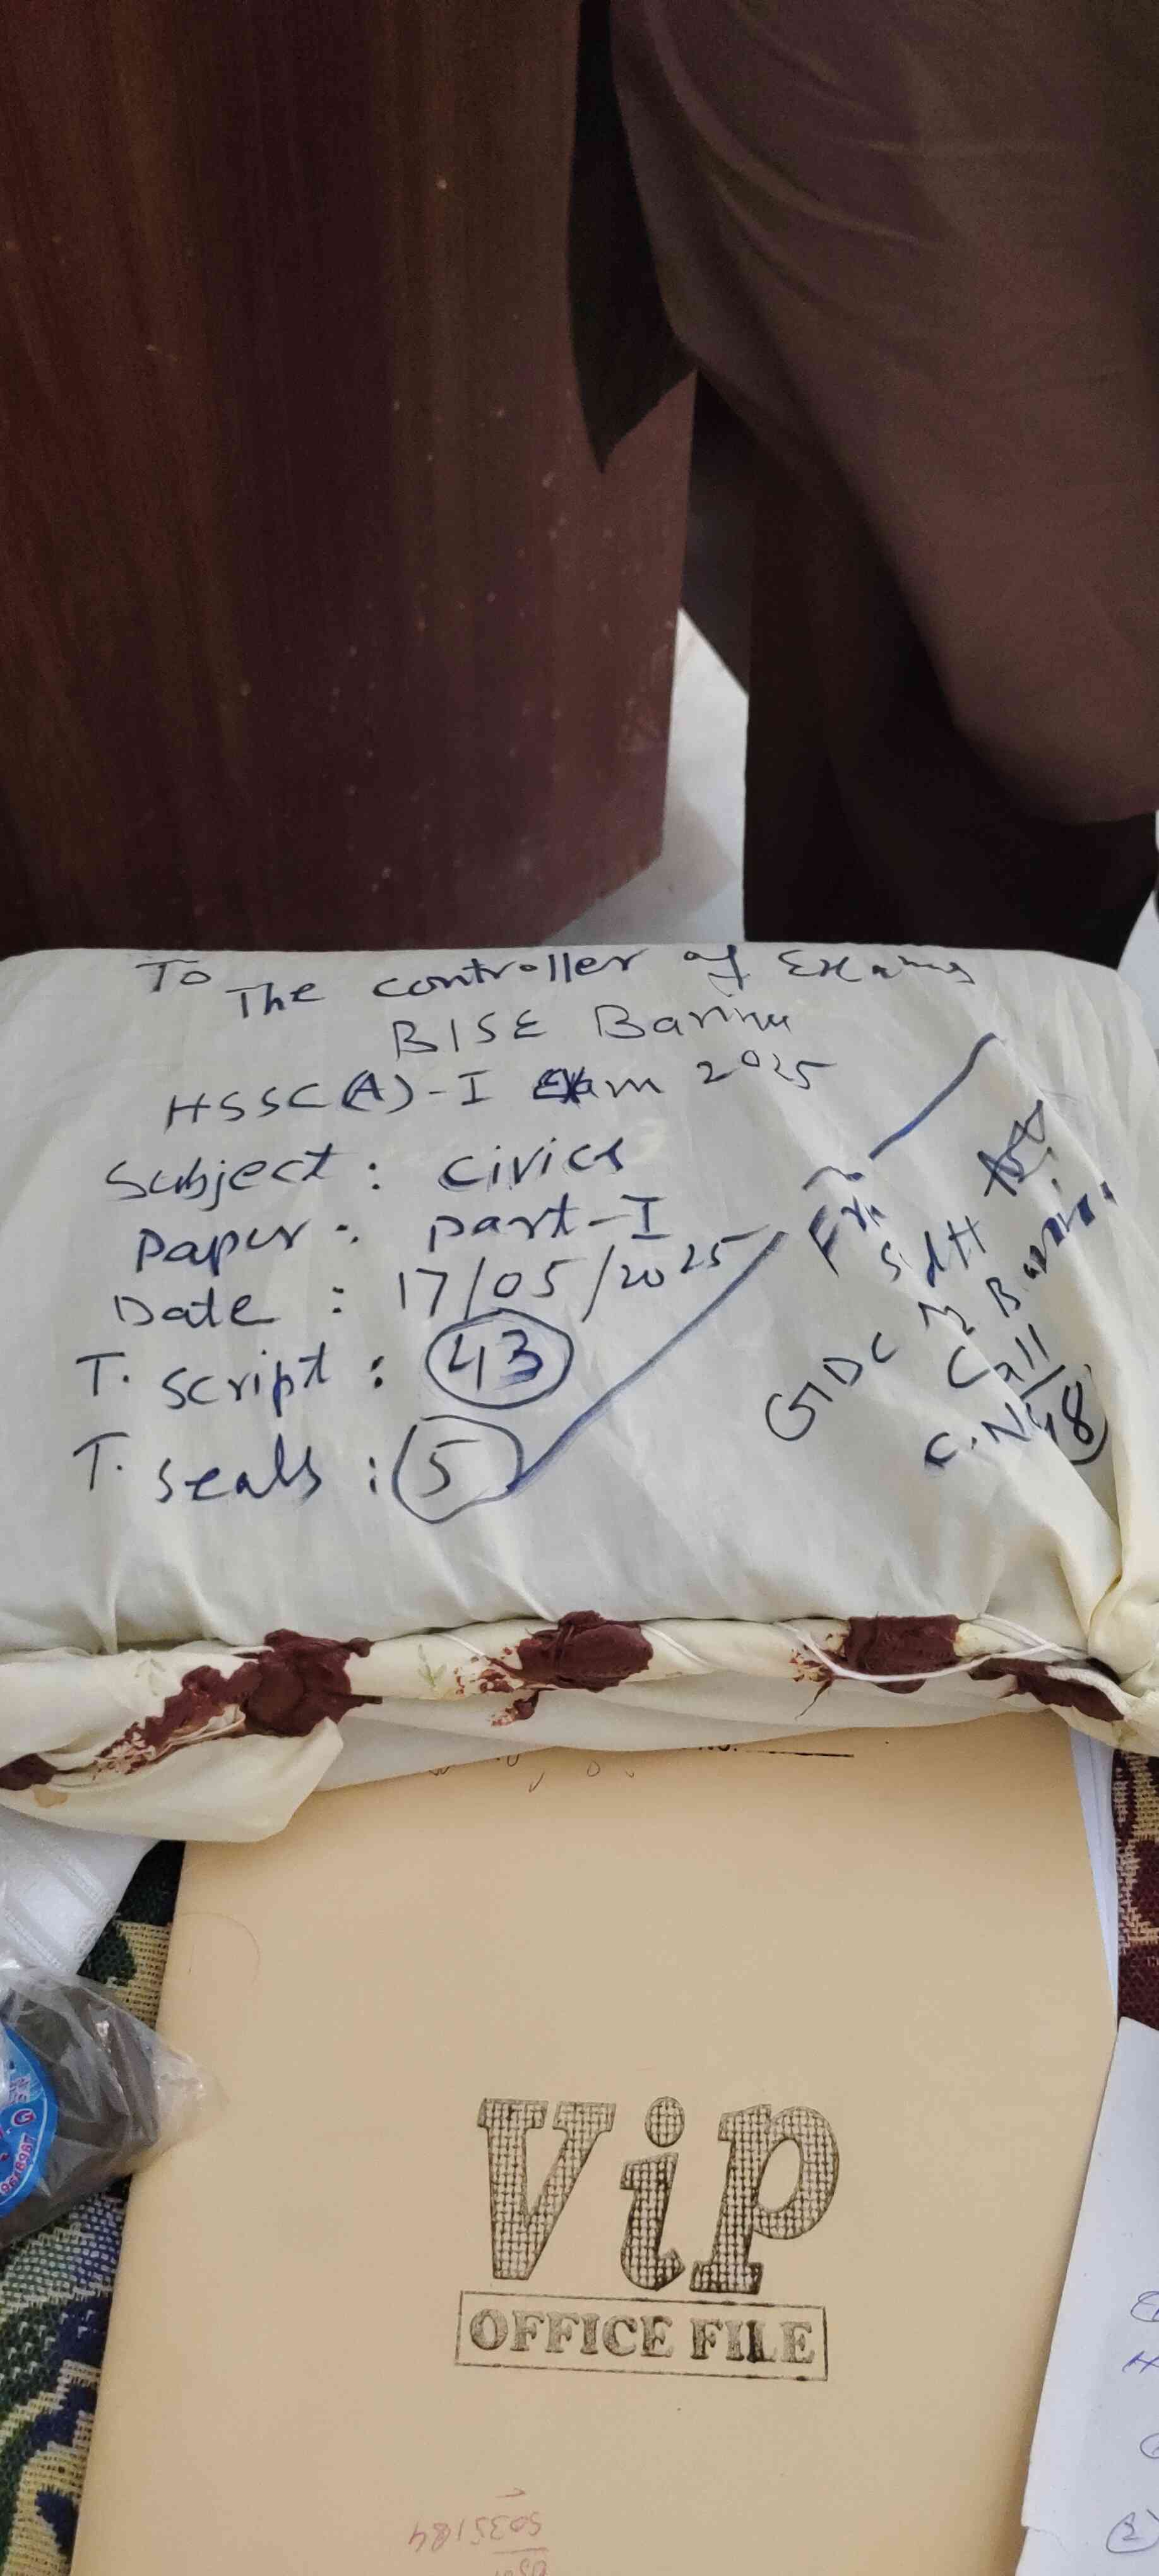 To
The controller of Exams
BISE Bannu
HSSC(A)-I Exam 2025
Subject : Civics
Paper : Part-I
Date : 17/05/2025
T. Script : 43
T. Seals : 5
Frm
GDC
Bannu
C.N 48
Vip
OFFICE FILE
5035184